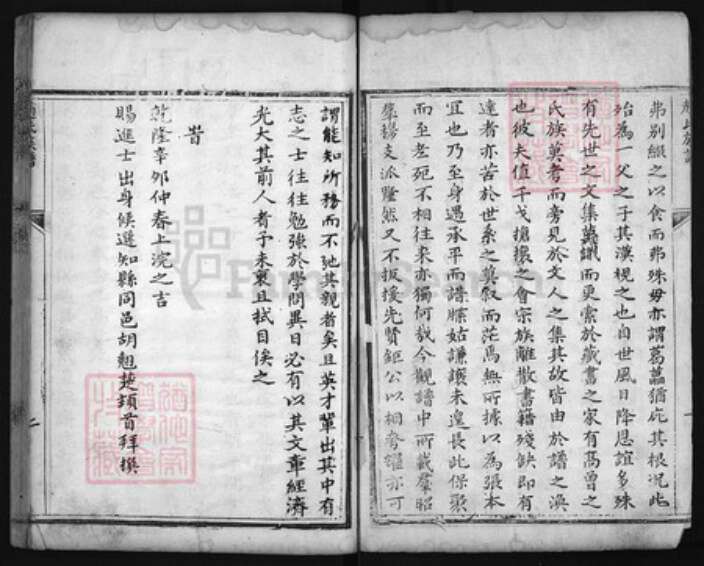 弗別綴之以食而弗殊毋亦謂葛藟猶庇其根況此
殆為一父之子其漠視之也自世風日降恩誼多殊
有先世之文集莫識而更索於藏書之家有高曾之
氏族莫考而旁見於文人之集其故皆由於譜之渙
也彼夫值干戈搶攘之會宗族離散書籍殘缺即有
達者亦苦於世系之莫叙而茫焉無所據以為張本
宜也乃至身遇承平而譜牒姑謙讓未遑長此保聚
而至老死不相往来亦獨何哉今觀譜中所載羣昭
羣穆支派釐然又不扳援先賢鉅公以相夸耀亦可
謂能知所務而不馳其親者矣且英才輩出其中有
志之士往往勉強於學問異日必有以其文章經濟
光大其前人者予未衰且拭目俟之
昔
乾隆辛卯仲春上浣之吉
賜進士出身候選知縣同邑胡翹楚頓首拜撰
二